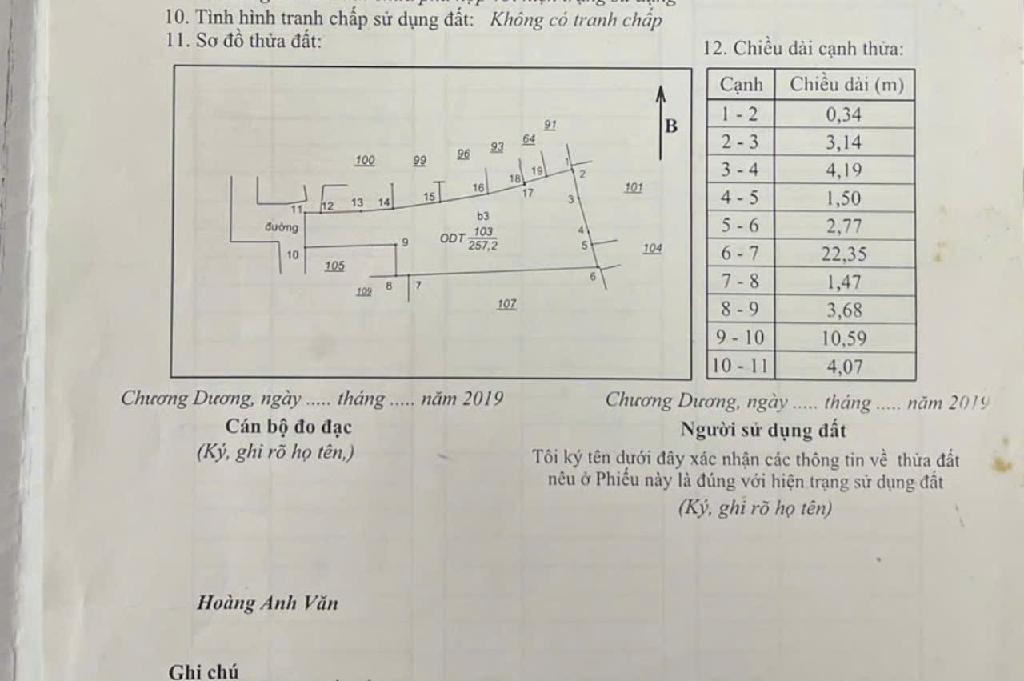 10. Tình hình tranh chấp sử dụng đất: Không có tranh chấp
11. Sơ đồ thửa đất:
12. Chiều dài cạnh thửa:
B
91
64
93
96
99
100
101
104
1
2
3
4
5
6
7
8
9
10
11
12
13
14
15
16
17
18
19
đường
b3
ODT 103
257,2
105
109
107
Cạnh Chiều dài (m)
1 - 2 0,34
2 - 3 3,14
3 - 4 4,19
4 - 5 1,50
5 - 6 2,77
6 - 7 22,35
7 - 8 1,47
8 - 9 3,68
9 - 10 10,59
10 - 11 4,07
Chương Dương, ngày ..... tháng ..... năm 2019
Cán bộ đo đạc
(Ký, ghi rõ họ tên,)
Chương Dương, ngày ..... tháng ..... năm 2019
Người sử dụng đất
Tôi ký tên dưới đây xác nhận các thông tin về thửa đất
nêu ở Phiếu này là đúng với hiện trạng sử dụng đất
(Ký, ghi rõ họ tên)
Hoàng Anh Văn
Ghi chú